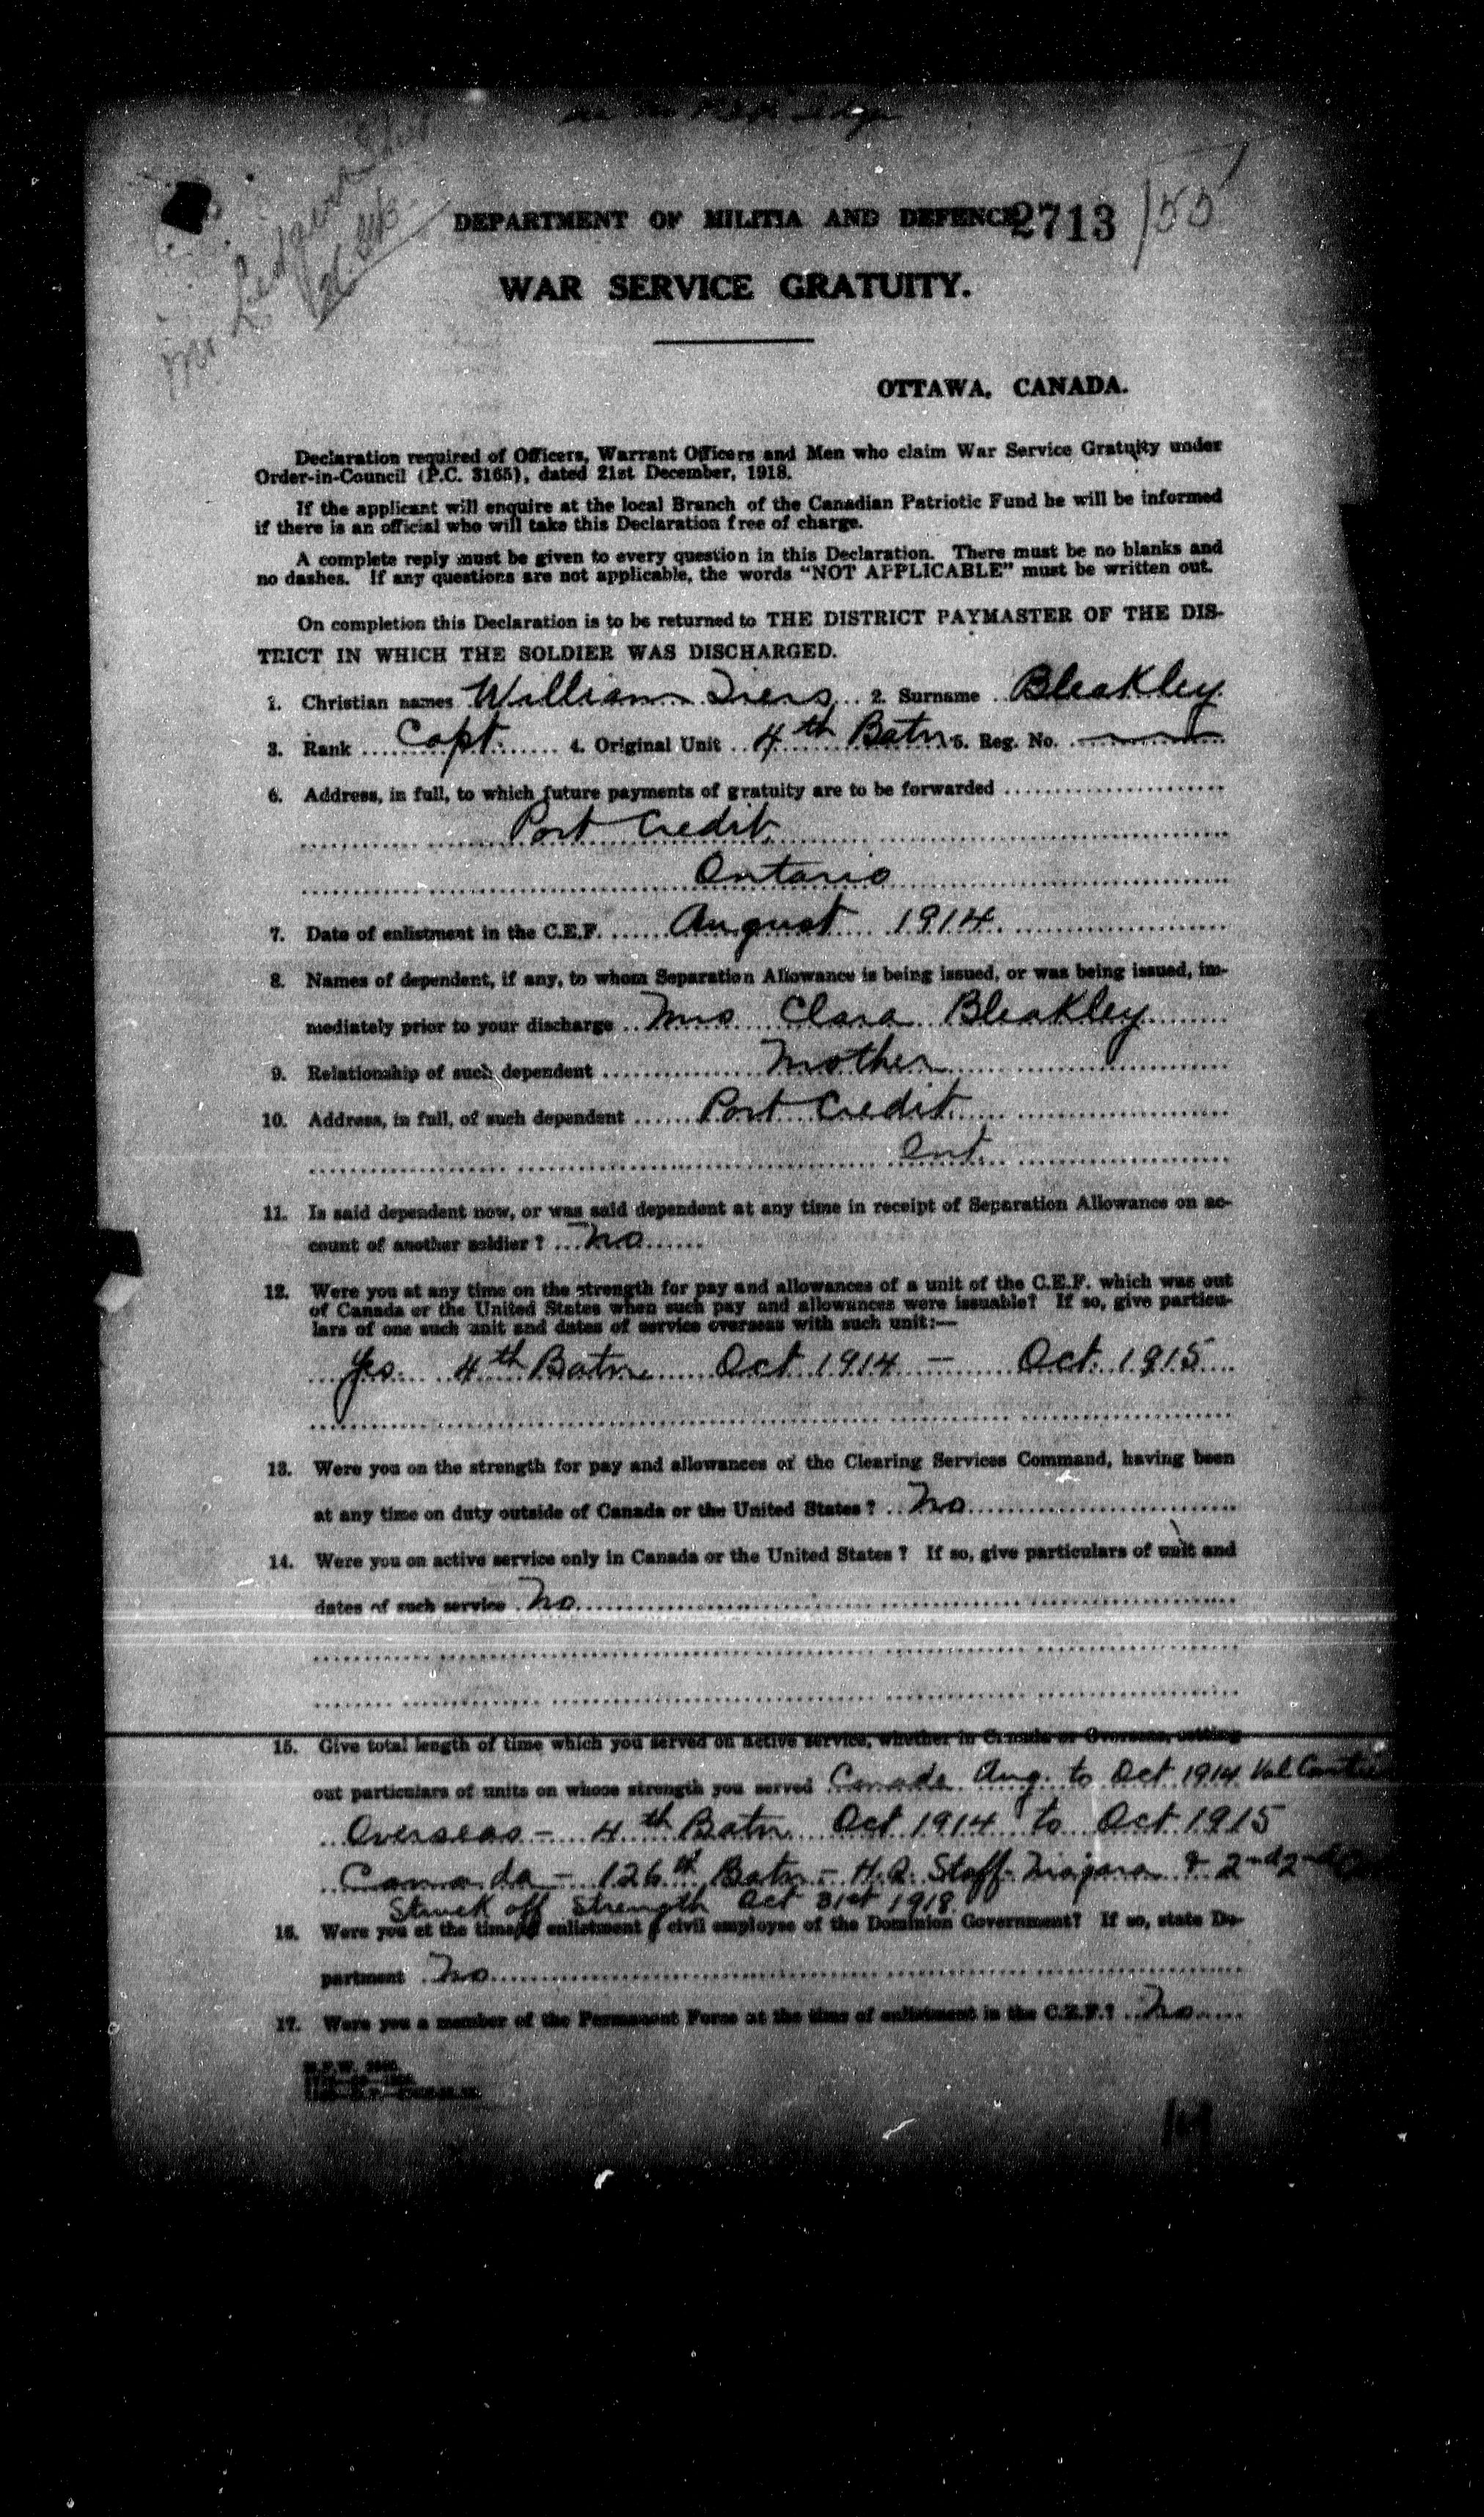 DEPARTMENT OF MILITIA AND DEFENCE 2713 / 55
WAR SERVICE GRATUITY.
OTTAWA, CANADA.
Declaration required of Officers, Warrant Officers and Men who claim War Service Gratuity under
Order-in-Council (P.C. 3165), dated 21st December, 1918.
If the applicant will enquire at the local Branch of the Canadian Patriotic Fund he will be informed
if there is an official who will take this Declaration free of charge.
A complete reply must be given to every question in this Declaration. There must be no blanks and
no dashes. If any questions are not applicable, the words "NOT APPLICABLE" must be written out.
On completion this Declaration is to be returned to THE DISTRICT PAYMASTER OF THE DIS-
TRICT IN WHICH THE SOLDIER WAS DISCHARGED.
1. Christian names William Tiers 2. Surname Bleakley
3. Rank Capt. 4. Original Unit 4th Batn 5. Reg. No.
6. Address, in full, to which future payments of gratuity are to be forwarded
Port Credit
Ontario
7. Date of enlistment in the C.E.F. August 1914
8. Names of dependent, if any, to whom Separation Allowance is being issued, or was being issued, im-
mediately prior to your discharge Mrs Clara Bleakley
9. Relationship of such dependent Mother
10. Address, in full, of such dependent Port Credit
Ont.
11. Is said dependent now, or was said dependent at any time in receipt of Separation Allowance on ac-
count of another soldier? No
12. Were you at any time on the strength for pay and allowances of a unit of the C.E.F. which was out
of Canada or the United States when such pay and allowances were issuable? If so, give particu-
lars of one such unit and dates of service overseas with such unit:—
Yes 4th Batn Oct 1914 — Oct. 1915
13. Were you on the strength for pay and allowances of the Clearing Services Command, having been
at any time on duty outside of Canada or the United States? No
14. Were you on active service only in Canada or the United States? If so, give particulars of unit and
dates of such service No
15. Give total length of time which you served on active service, whether in Canada or Overseas, setting
out particulars of units on whose strength you served Canada Aug. to Oct 1914 Val Cartier
Overseas — 4th Batn Oct 1914 to Oct 1915
Canada — 126th Batn — H.Q. Staff Niagara & 2nd 2nd
Struck off Strength Oct 31st 1918
16. Were you at the time of enlistment a civil employee of the Dominion Government? If so, state De-
partment No
17. Were you a member of the Permanent Force at the time of enlistment in the C.E.F.? No